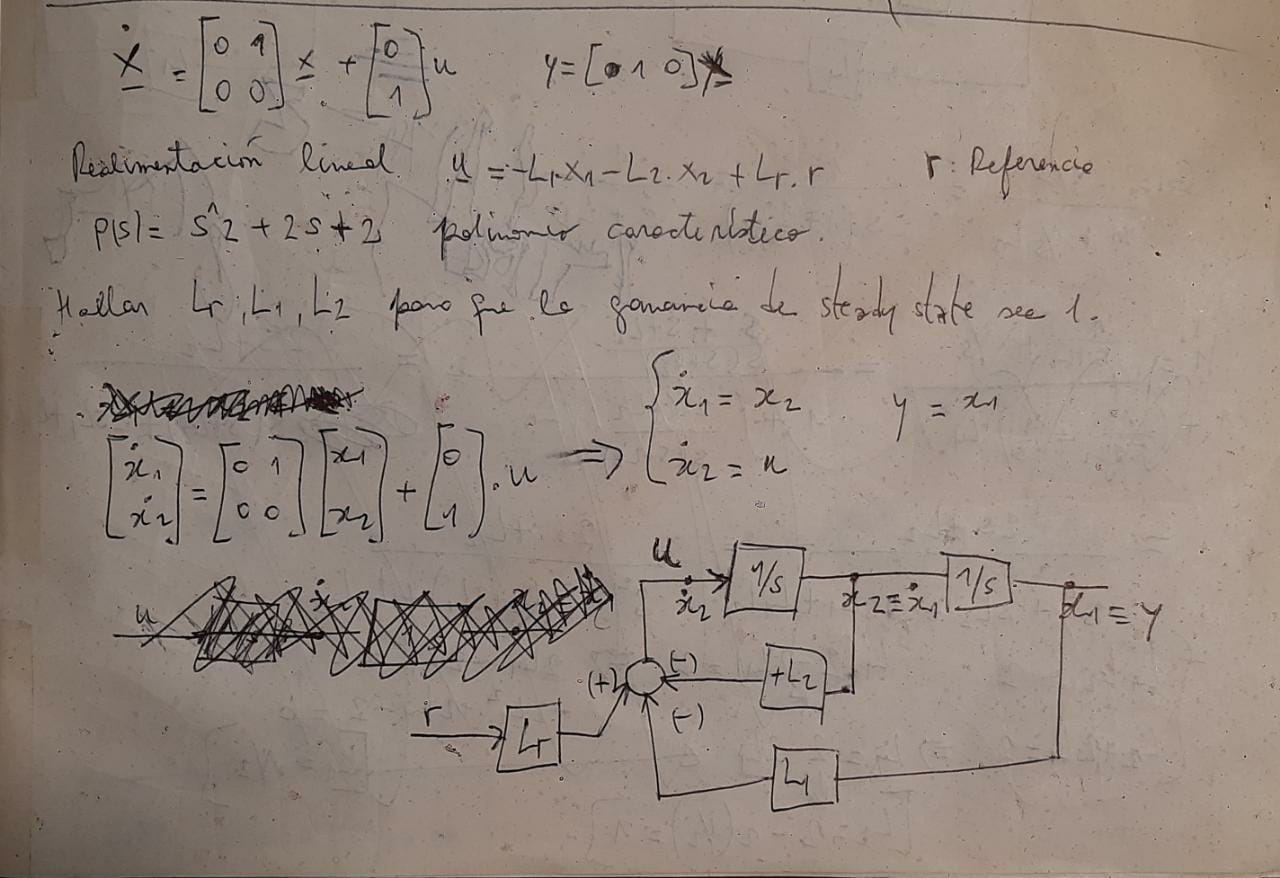 ẋ = [0 1; 0 0] x + [0; 1] u    y = [1 0]
Realimentación lineal. u = -L1.x1 - L2.x2 + Lr.r    r: Referencia
P(s) = s^2 + 2s + 2 polinomio característico.
Hallar Lr, L1, L2 para que la ganancia de steady state sea 1.
[ẋ1; ẋ2] = [0 1; 0 0] [x1; x2] + [0; 1].u ⇒ { ẋ1 = x2    y = x1
ẋ2 = u
u
ẋ2
1/s
x2 ≡ ẋ1
1/s
x1 ≡ y
(+)
(-)
+L2
r
Lr
(-)
L1